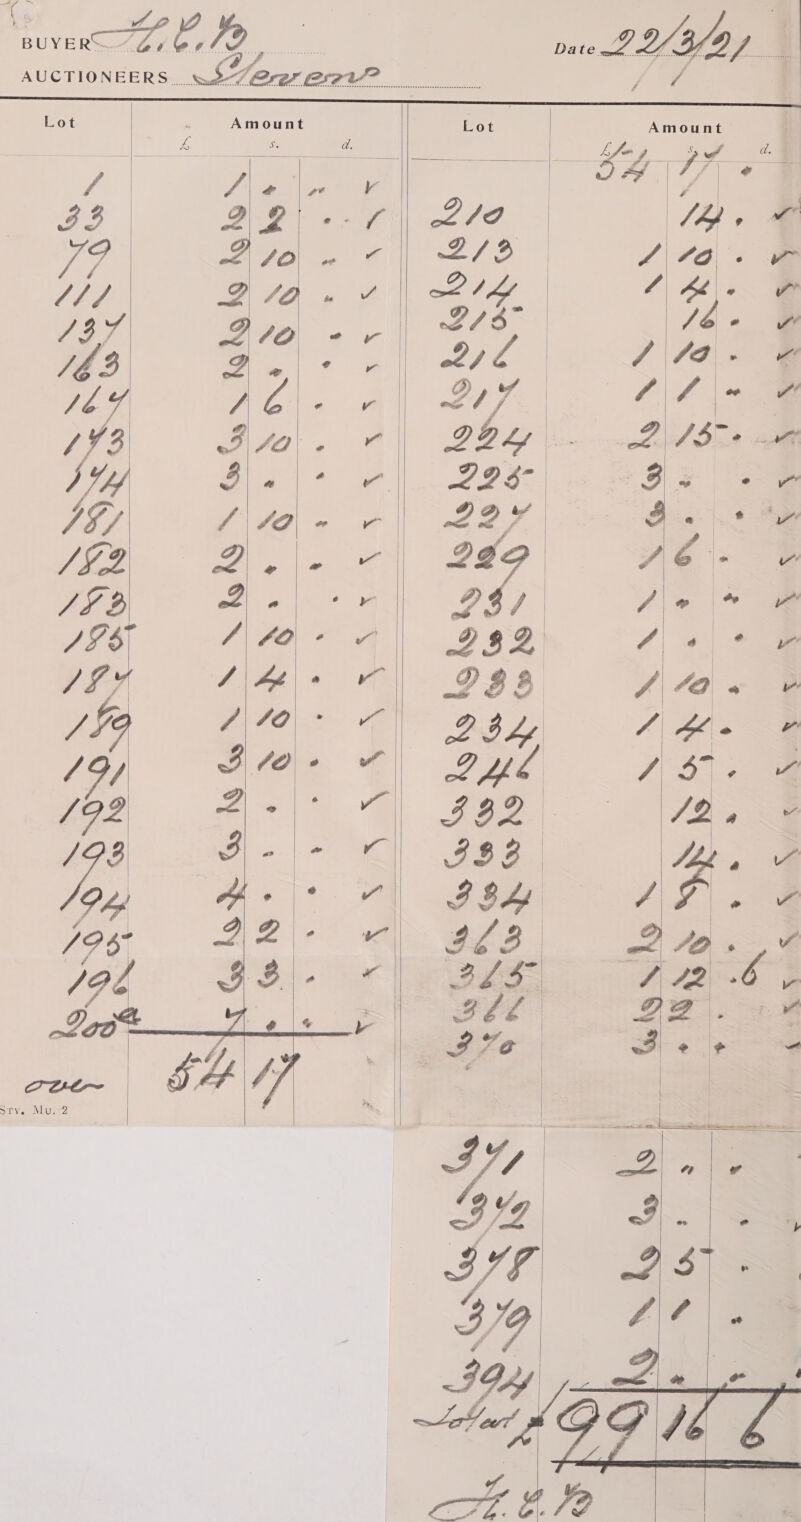 BUYER H.C.B Date 22/3/21
AUCTIONEERS Stevens
Lot Amount Lot Amount
£ s. d. £ s. d.
54 17 .
1 1 - - ✓
33 2 2 - - ✓ 210 14 . ✓
79 2 10 - ✓ 213 1 10 . ✓
111 2 10 - ✓ 214 1 4 . ✓
137 2 10 - ✓ 215 16 - ✓
163 2 - - ✓ 216 1 10 . ✓
167 1 6 - ✓ 217 1 1 - ✓
173 3 10 . ✓ 224 2 15 - ✓
174 3 - - ✓ 225 3 - - ✓
181 1 10 - ✓ 227 3 . . ✓
182 2 - - ✓ 229 1 6 - ✓
183 2 - - ✓ 231 1 - - ✓
185 1 10 - ✓ 232 1 . . ✓
187 1 4 . ✓ 233 1 10 . ✓
189 1 10 - ✓ 234 1 4 - ✓
191 3 10 . ✓ 246 1 5 . ✓
192 2 - - ✓ 332 12 . ✓
193 3 - - ✓ 333 14 . ✓
194 4 . . ✓ 334 1 8 . ✓
195 2 2 - ✓ 363 2 10 . ✓
196 3 3 - ✓ 365 1 12 - 6 ✓
200a 7 . . ✓ 366 2 2 . ✓
370 3 . . ✓
over 54 17
Srv. Mu. 2
371 2 - -
372 3 - -
378 2 5 .
379 1 1 .
394 2 - -
Total £ 99 16 6
H.C.B